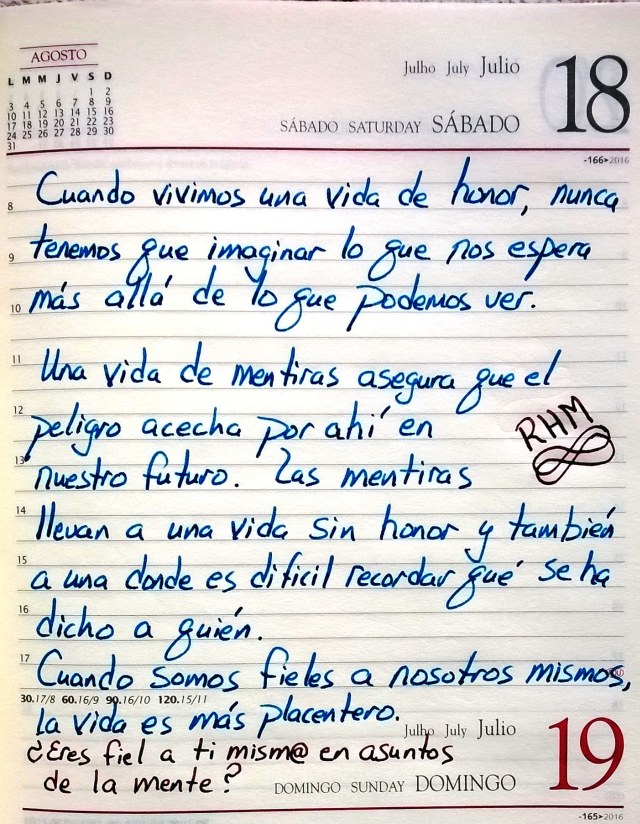 AGOSTO
L M M J V S D
1 2
3 4 5 6 7 8 9
10 11 12 13 14 15 16
17 18 19 20 21 22 23
24 25 26 27 28 29 30
31
Julho July Julio
SÁBADO SATURDAY SÁBADO
18
-166>2016
8 Cuando vivimos una vida de honor, nunca
9 tenemos que imaginar lo que nos espera
10 más allá de lo que podemos ver.
11 Una vida de mentiras asegura que el
12 peligro acecha por ahí en
RHM
13 nuestro futuro. Las mentiras
14 llevan a una vida sin honor y también
15 a una donde es dificil recordar qué se ha
16 dicho a quién.
17 Cuando somos fieles a nosotros mismos,
30.17/8 60.16/9 90.16/10 120.15/11
la vida es más placentero.
Julho July Julio
¿Eres fiel a ti mism@ en asuntos
de la mente?
DOMINGO SUNDAY DOMINGO
19
-165>2016